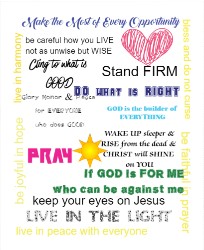 Make the Most of Every Opportunity
be careful how you LIVE
not as unwise but WISE
Cling to what is
GOOD
Stand FIRM
DO WHAT IS RIGHT
Glory Honor & Peace
for EVERYONE
who does GOOD
GOD is the builder of
EVERYTHING
WAKE UP sleeper &
RISE from the dead &
CHRIST will SHINE
on YOU
PRAY
If GOD is FOR ME
Who can be against me
keep your eyes on Jesus
LIVE IN THE LIGHT
live in peace with everyone
live in harmony
be joyful in hope
bless and do not curse
be faithful in prayer